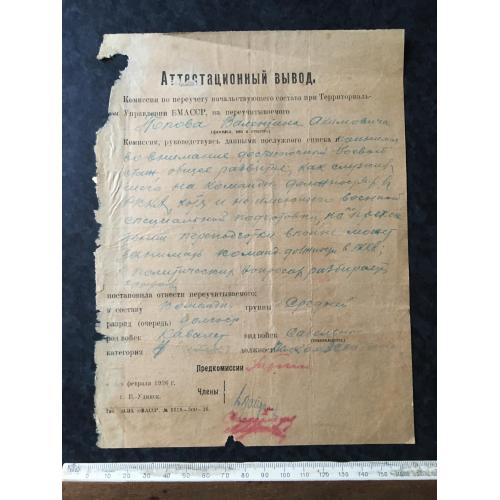 Аттестационный вывод.
Комиссия по переучету начальствующего состава при Территориаль-
ном Управлении БМАССР, на переучитываемого
Попова Валентина Акимовича
(фамилия, имя и отчество)
Комиссия, руководствуясь данными послужного списка
во внимание достаточный боевой
стаж общее развитие, как служив
шего на командн должностях в
РККА, хотя и не имеющего военной
специальной подготовки, но после
переподготовки вполне может
занимать команд должность в РККА;
Политических вопросах разбирается
постановила отнести переучитываемого:
к составу Команды группы Средней
разряд (очередь)
род войск Кавалер вид войск Сабельн
категория должность
Предкомиссии
Члены
февраля 1926 г.
г. В.-Удинск.
0 10 20 30 40 50 60 70 80 90 100 110 120 130 140 150